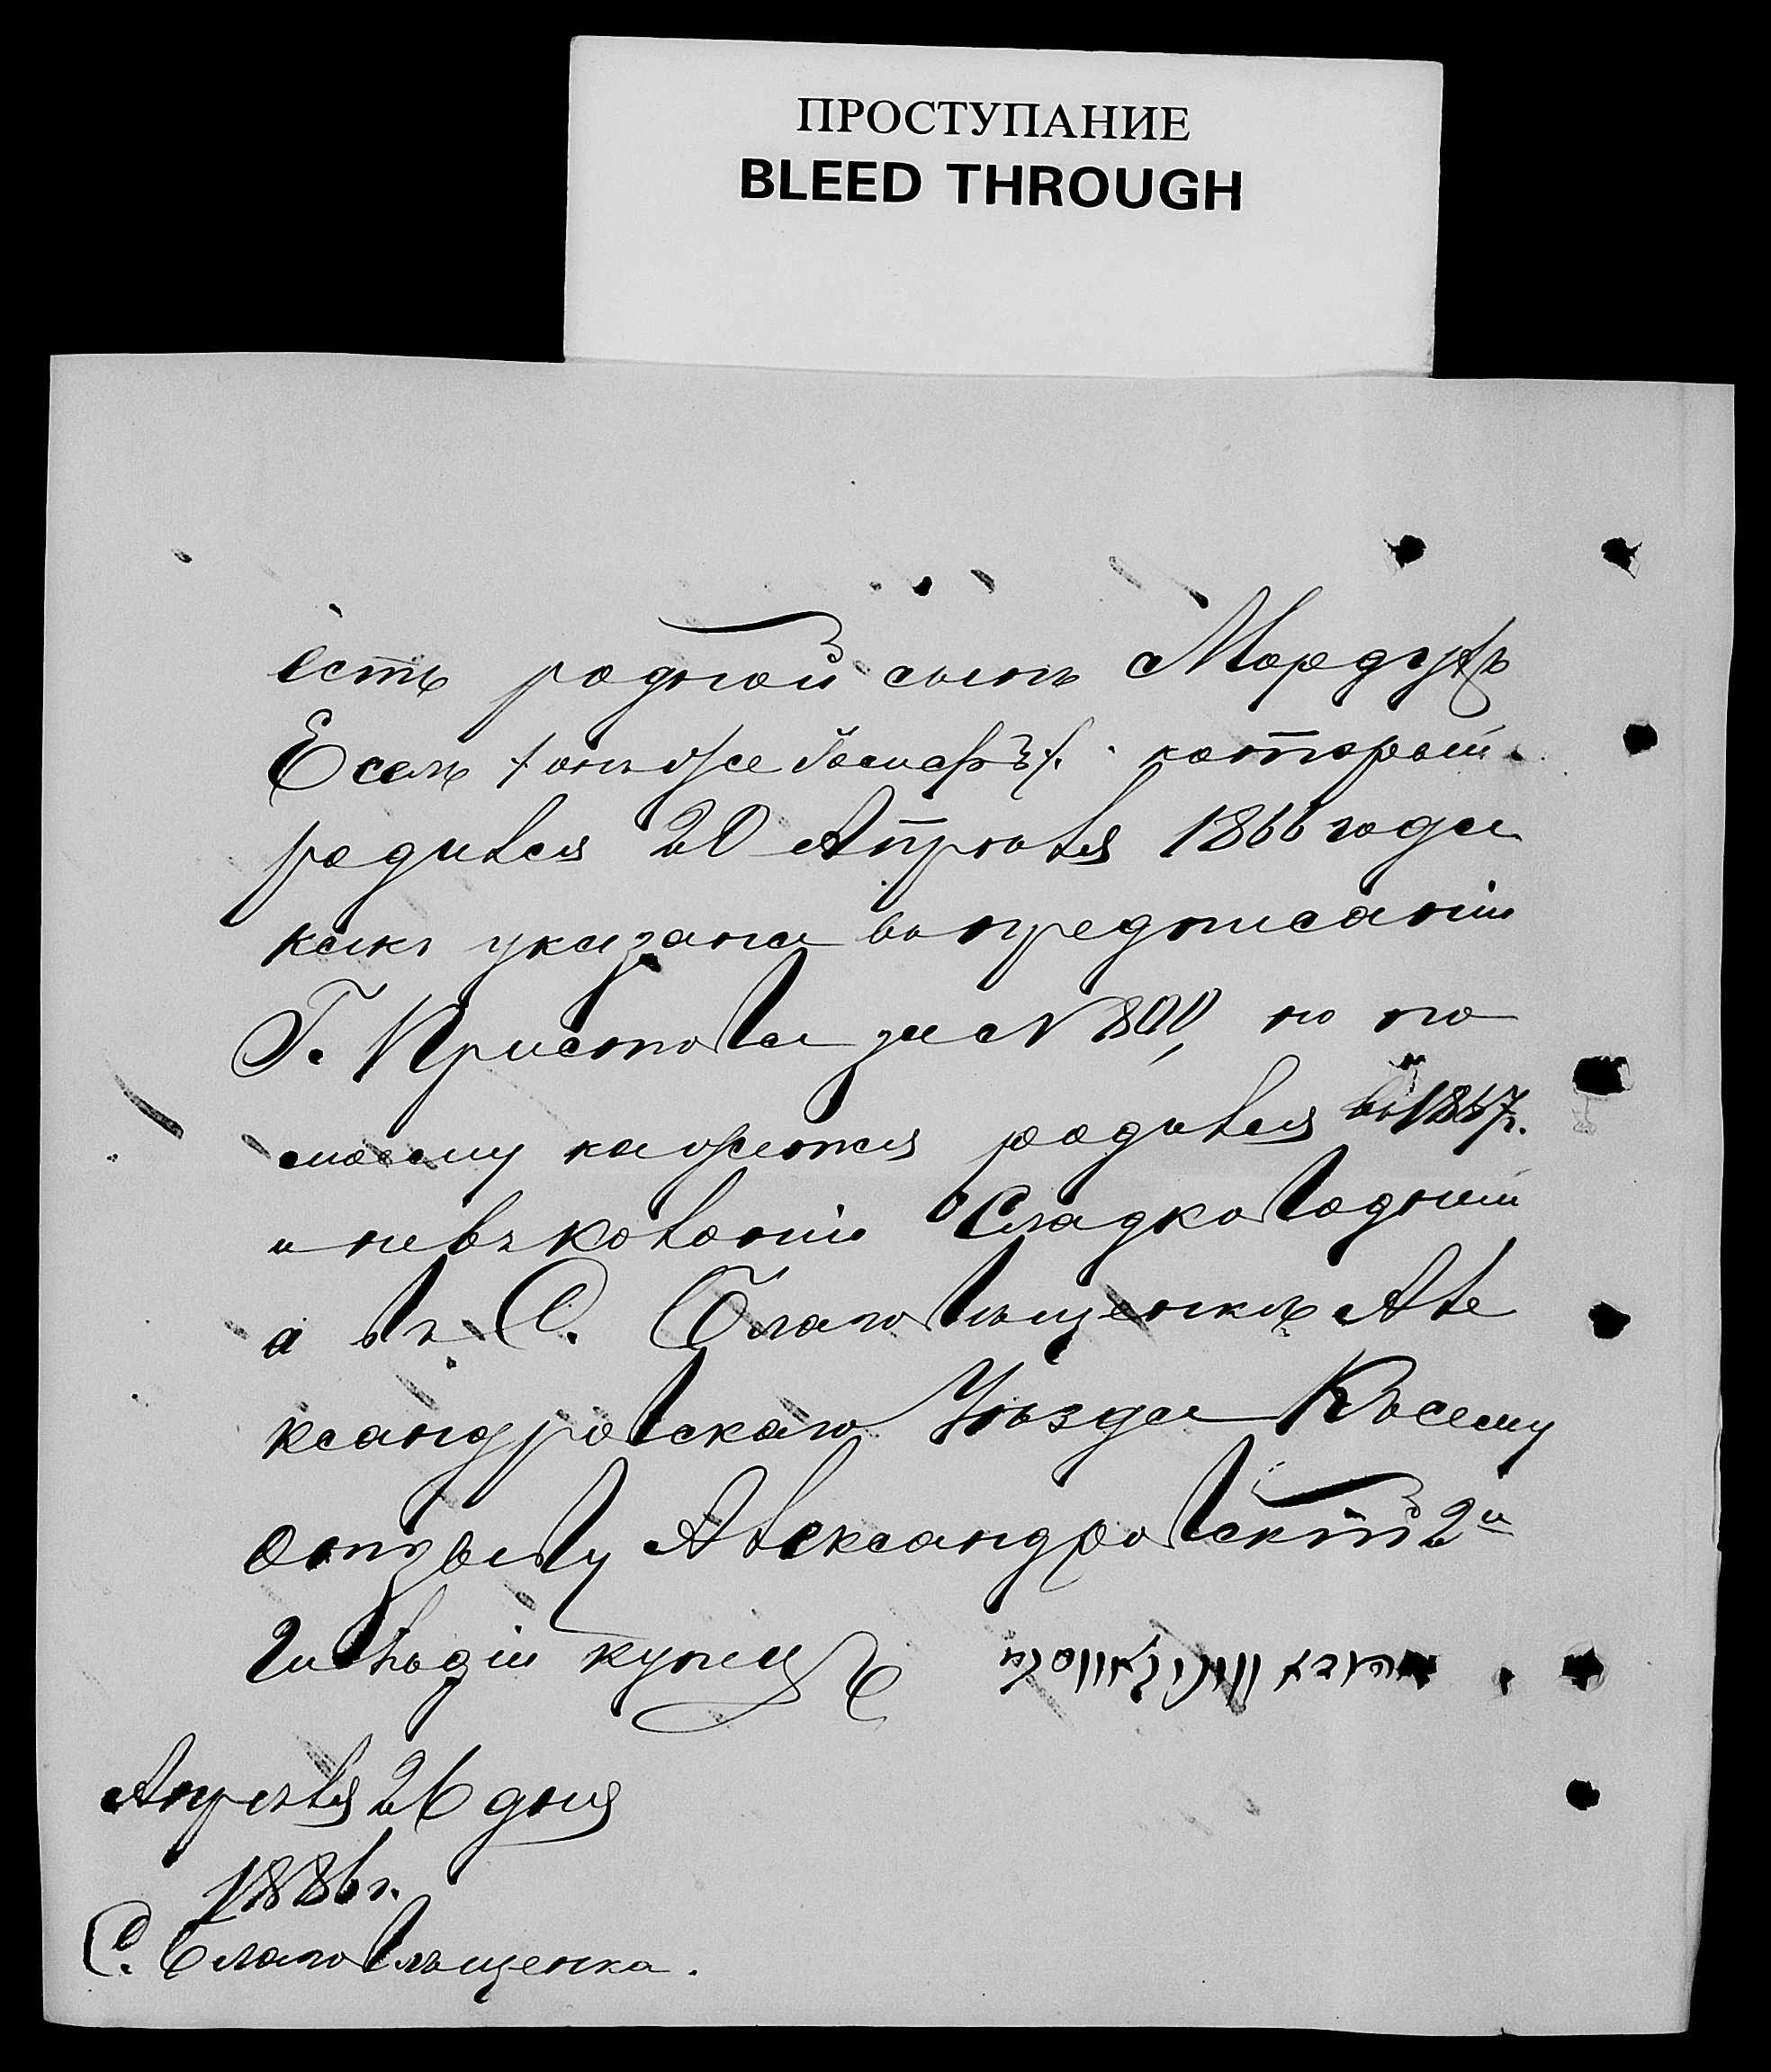 ПРОСТУПАНИЕ
BLEED THROUGH
есть родной сынъ Мордухъ
Есель /онъ же Іосифъ/. который
родился 20 Апрѣля 1866 года
какъ указано въ предписаніи
Г. Пристова за № 800, но по
моему кажется родился въ 1867г.
и не въ колоніи Сладководнѣй
а въ С. Благовѣщенкѣ Але
ксандровскаго Уѣзда Къ сему
отзыву Александровскій 2й
Гильдіи купецъ
Апрѣля 26 дня
1886 г.
С. Благовѣщенка.